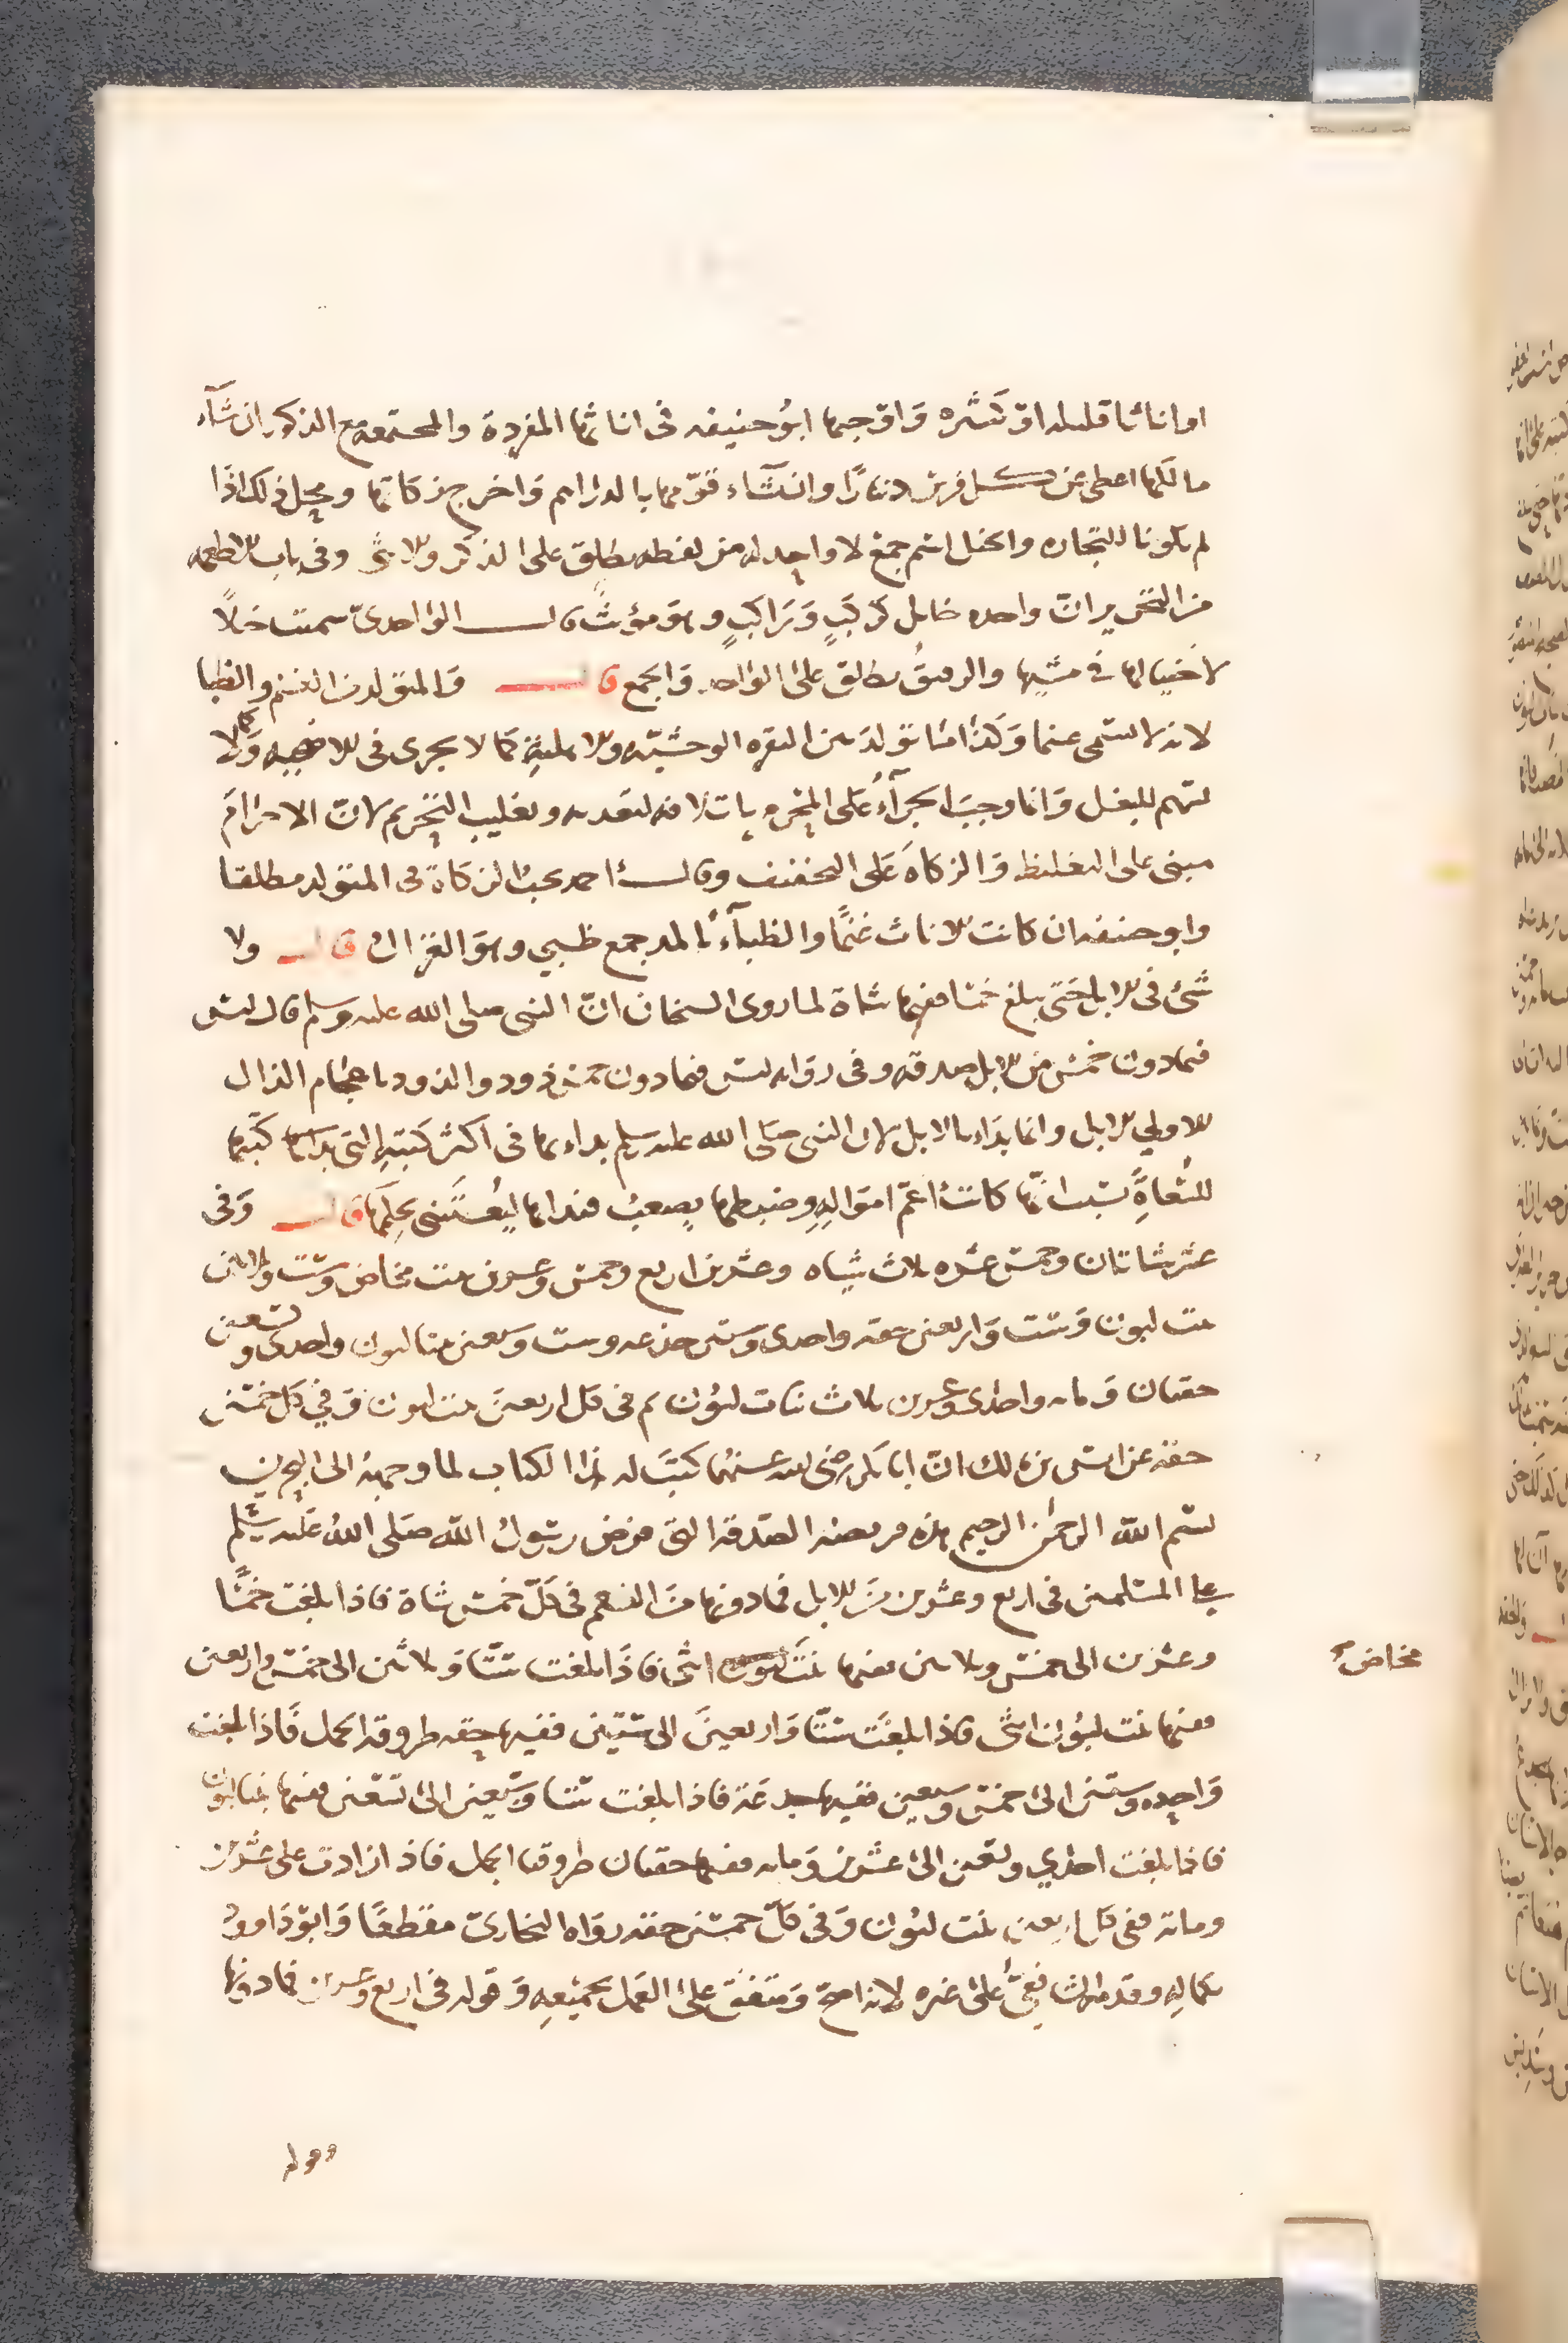 او اناثا قليله او كثيره وَاوْجبها ابُوحنيفه فى اناثها المفردة والمجتمعه مع الذكور ان شآء
مالكها اعطى عن كل فرس دينارًا وان شآء قوّمها بالدراهم وَاخرج زكاتها ومحِل ذلك اذَا
لم يكونا للتجاره والخيل اسم جمع لا واحد له من لفظه يطلق على الذكر والانثى وفى باب الاطعمه
من التحرير انّ واحده خايل كرَكبٍ وَرَاكبٍ وهوَ مؤنث قال الواحدىّ سميت خيلاً
لاختيالها فى مشيها والرقيقُ يطلق على الواحد وَالجمع قال وَالمتولد من الغنم والظبا
لانه لا يسمى غنما وَكذا المتولد بين البقره الوحشيّه والاهليةِ كما لا يجرى فى الاضحيه وَكما لا
يسهم للبغل وَانما وجبَ الجزآءُ على المحرم باتلافه لتعديه وتغليب التحريم لانّ الاحرامَ
مبنى على التغليظ وَالزكاةَ عَلى التخفيف وقال احمد يجب الزكاة فى المتولد مطلقا
وابو حنيفه ان كانت الاناث غنمًا والظبآءُ بالمد جمع ظبي وهوَ الغزال قال ولا
شئ فى الابل حَتى يبلغ خمسا ففيها شاة لما روى الشيخان انّ النبى صلى الله عليه وسلم قال ليس
فيما دون خمس من الابل صدقه وفى روَايه ليس فيما دون خمس ذود والذود باعجَام الذال
الاولي الابل وانما بدَاء بالابل لان النبى صلى الله عليه وسلم بداء بها فى اكثر كتبهِ التى كتبها
للسُعَاةِ بسبب انّها كانت اعمّ اموَالهِم وضبطها يصعبُ فبداء بها ليُعتَنى بحِكمها قال وَفى
عشر شاتان وخمسَ عشره ثلاث شياه وعشرين اربع وخمس وعشرين بنت مخاض وَستّ وثلاثين
بنت لبون وَستّ وَاربعين حقه واحدى وَستين جذعه وست وَسبعين بنتا لبون واحدى وتسعين
حقتان وَمايه واحدى وعشرين ثلاث بَنات لبُون ثم فى كل اربعينَ بنت لبون وَفي كل خمسين
حقه عن انس بن مالك انّ ابا بكر رضى الله عنهُما كتبَ له هذا الكتاب لما وجههُ الى البحرين
بسم الله الرحمٰن الرحيم هذه فريضه الصّدقه التى فرض رسُولُ الله صَلى اللهُ عَليه وسلم
على المسلمين فى اربع وعشرين مِن الابل فمادونها منَ الغنم فى كلّ خمس شاة فاذا بلغت خمسًا
وعشرين الى خمس وثلاثين ففيها بنتَ لبون انثى فاذَا بلغت ستّا وَثلاثين الى خمس واربعين
مخاض
ففيها بنت لبُون انثى فاذا بلغَت ستّا وَاربعينَ الى ستّين ففيها حقه طروقه الجمل فَاذا بلغت
وَاحِده وستين الى خمس وسبعين ففيها جذعَة فاذا بلغت ستّا وَسبعين الى تسعين ففيها بنتا لبون
فاذا بلغت احدي وتسعين الى عشرين وَمايه ففيها حقتان طروقتا الجمل فاذا زادت على عشرين
ومايه ففى كل اربعين بنت لبُون وَفى كلّ خمسين حقه روَاه البخارىّ مقطعًا وَابوُ دَاوودُ
بكمالهِ وقدمه الشافعىُّ على غيره لانه اصحّ وَمتفق على العَمل بجميعِهِ وَقوله فى اربع وعشرين فمادونها
وقوله